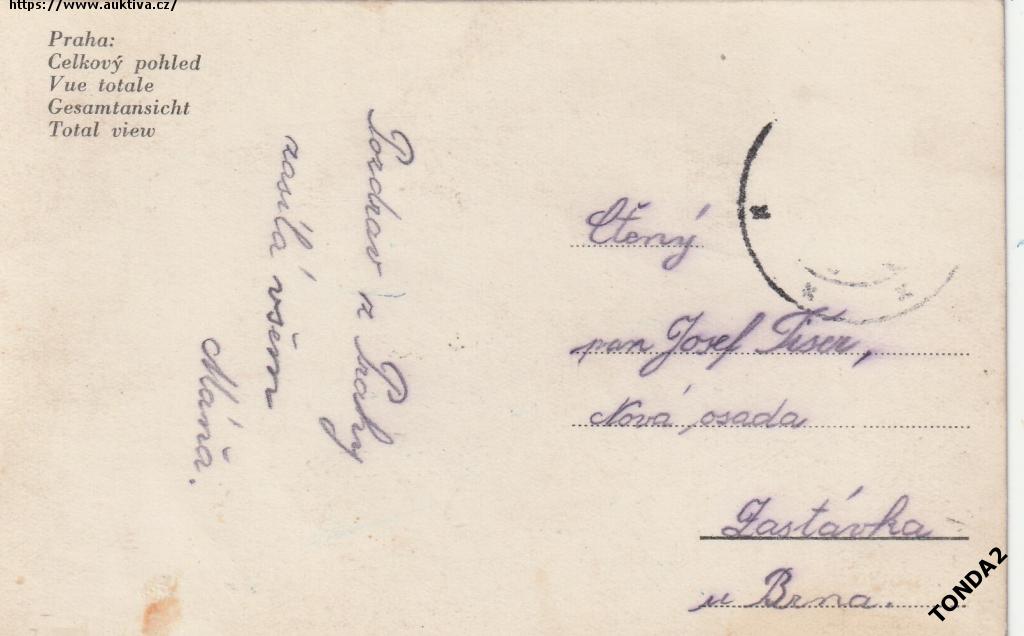 https://www.auktiva.cz/
Praha:
Celkový pohled
Vue totale
Gesamtansicht
Total view
Pozdrav z Prahy
zasílá všem
Máňa.
Ctěný
pan Josef Tišer,
Nová osada
Zastávka
u Brna.
TONDA2